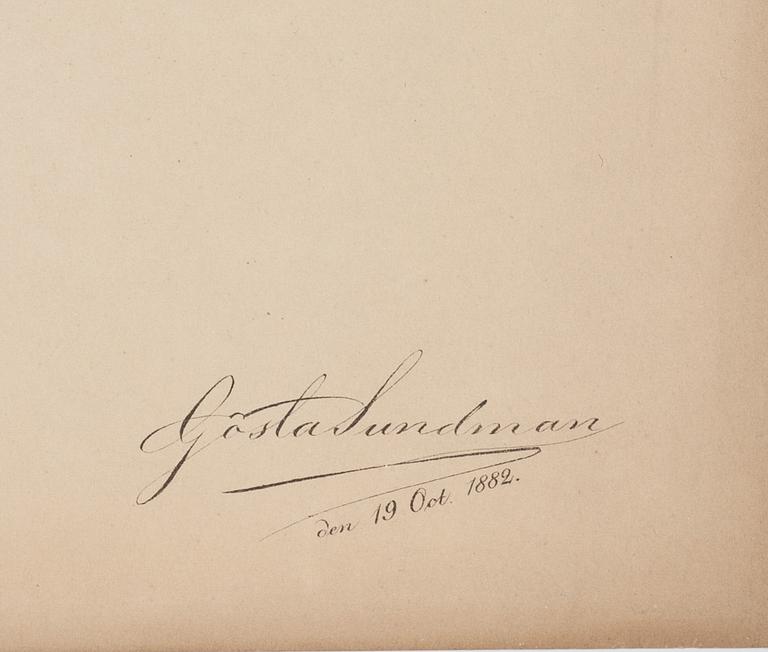 Gösta Sundman
den 19 Oct. 1882.